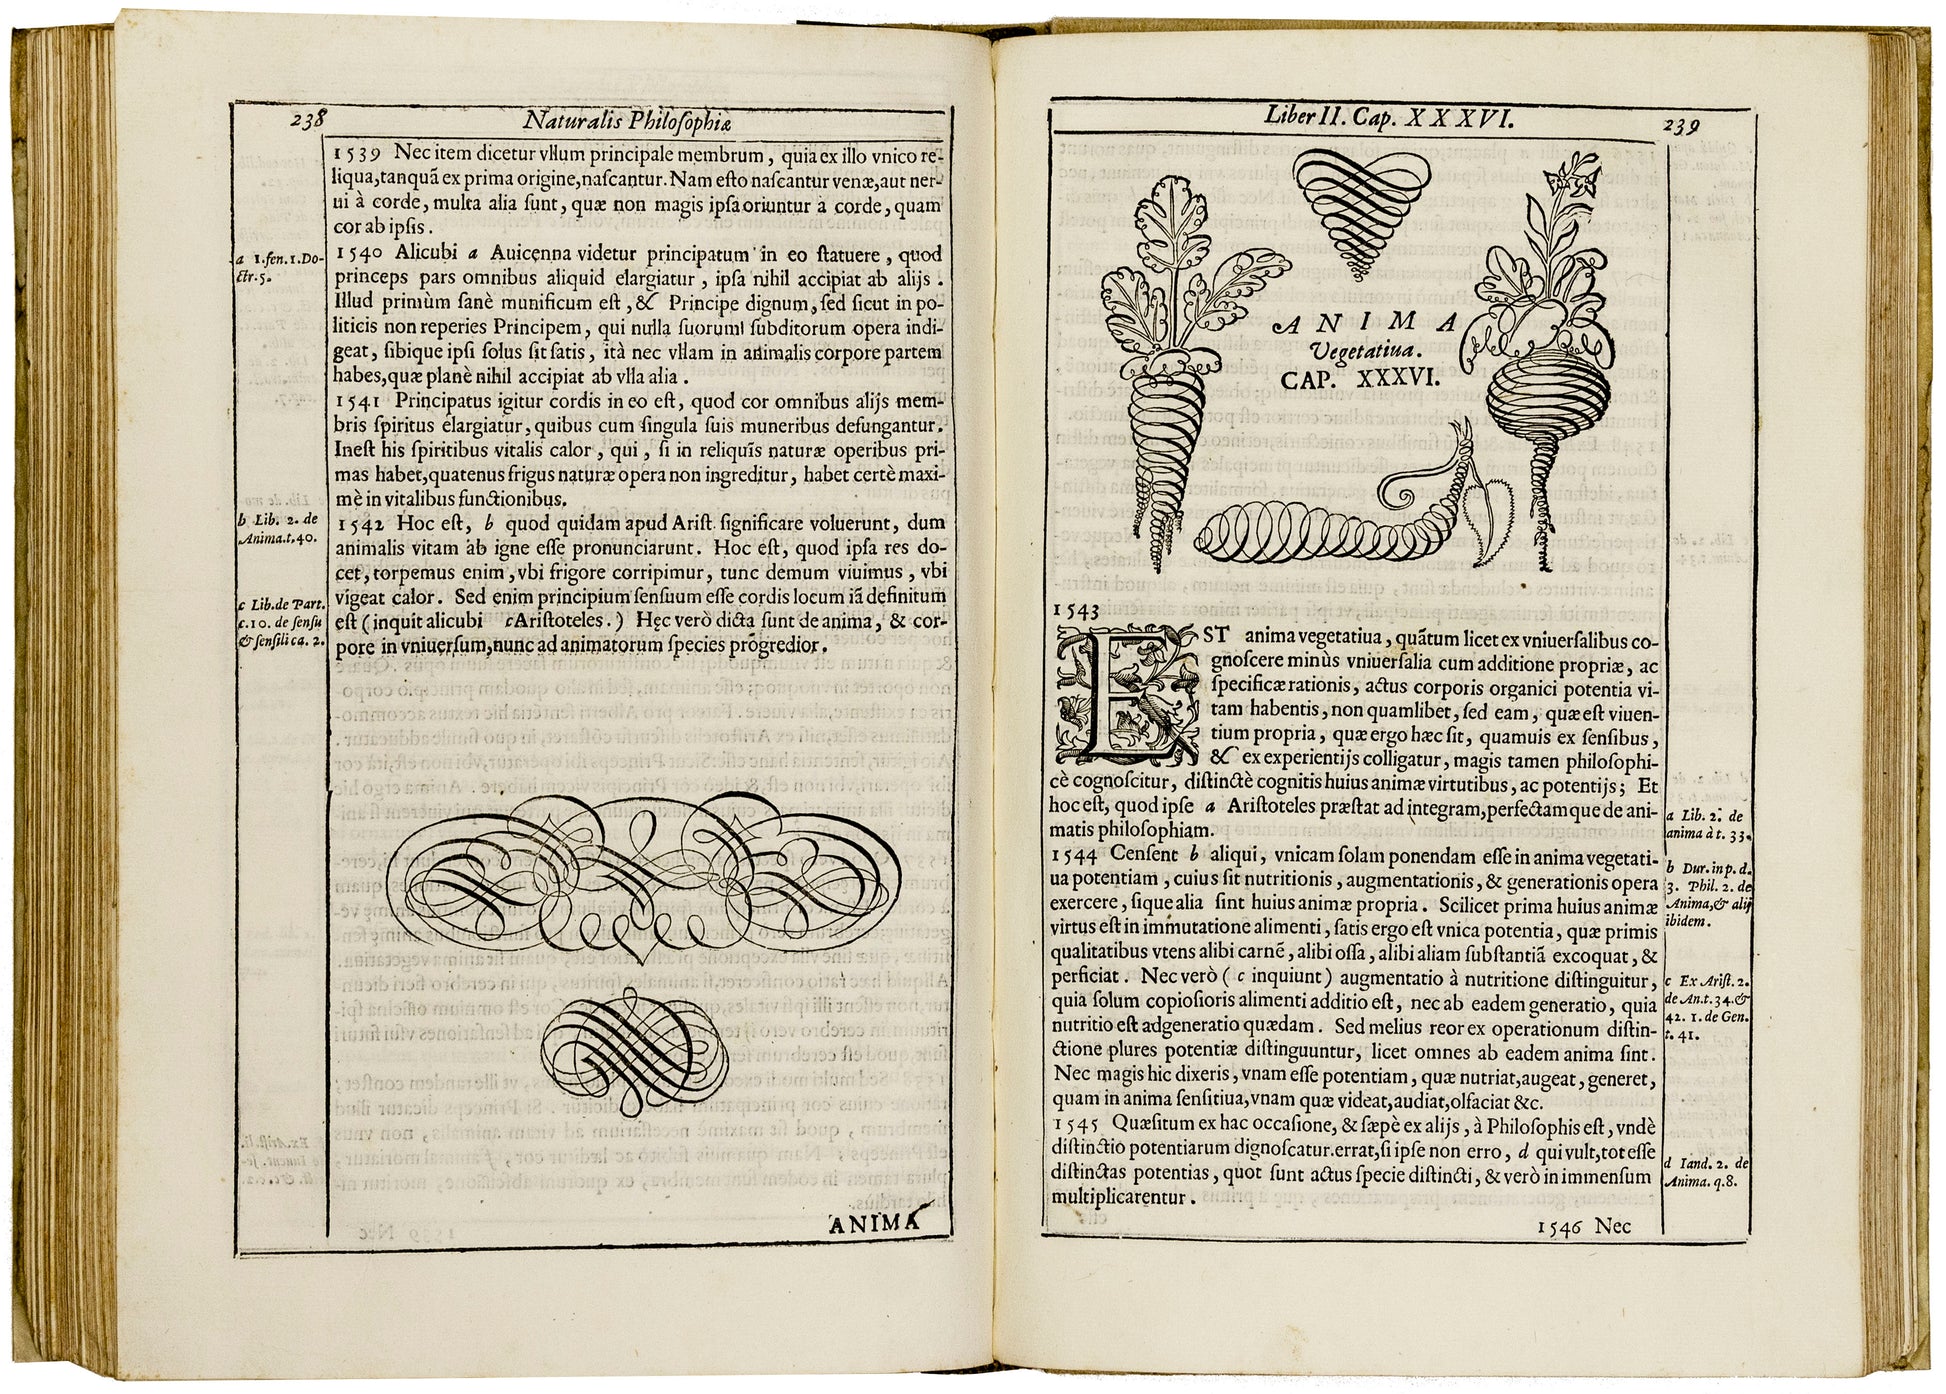 238
Naturalis Philoſophiæ
1539 Nec item dicetur vllum principale membrum, quia ex illo vnico re-
liqua, tanquã ex prima origine, naſcantur. Nam eſto naſcantur venæ, aut ner-
ui à corde, multa alia ſunt, quæ non magis ipſa oriuntur à corde, quam
cor ab ipſis.
a 1. fen. 1. Do-
ctr. 5.
1540 Alicubi a Auicenna videtur principatum in eo ſtatuere, quod
princeps pars omnibus aliquid elargiatur, ipſa nihil accipiat ab alijs.
Illud primùm ſanè munificum eſt, & Principe dignum, ſed ſicut in po-
liticis non reperies Principem, qui nulla ſuorum ſubditorum opera indi-
geat, ſibique ipſi ſolus ſit ſatis, ità nec vllam in animalis corpore partem
habes, quæ planè nihil accipiat ab vlla alia.
1541 Principatus igitur cordis in eo eſt, quod cor omnibus alijs mem-
bris ſpiritus elargiatur, quibus cum ſingula ſuis muneribus defungantur.
Ineſt his ſpiritibus vitalis calor, qui, ſi in reliquīs naturæ operibus pri-
mas habet, quatenus frigus naturæ opera non ingreditur, habet certè maxi-
mè in vitalibus functionibus.
b Lib. 2. de
Anima. t. 40.
1542 Hoc eſt, b quod quidam apud Ariſt. ſignificare voluerunt, dum
animalis vitam ab igne eſſe pronunciarunt. Hoc eſt, quod ipſa res do-
cet, torpemus enim, vbi frigore corripimur, tunc demum viuimus, vbi
vigeat calor. Sed enim principium ſenſuum eſſe cordis locum iã definitum
eſt (inquit alicubi c Ariſtoteles.) Hęc verò dicta ſunt de anima, & cor-
pore in vniuerſum, nunc ad animatorum ſpecies prōgredior.
c Lib. de Part.
c. 10. de ſenſu
& ſenſili ca. 2.
ANIMA
Liber II. Cap. XXXVI.
239
ANIMA
Vegetatiua.
CAP. XXXVI.
1543
EST anima vegetatiua, quãtum licet ex vniuerſalibus co-
gnoſcere minùs vniuerſalia cum additione propriæ, ac
ſpecificæ rationis, actus corporis organici potentia vi-
tam habentis, non quamlibet, ſed eam, quæ eſt viuen-
tium propria, quæ ergo hæc ſit, quamuis ex ſenſibus,
& ex experientijs colligatur, magis tamen philoſophi-
cè cognoſcitur, diſtinctè cognitis huius animæ virtutibus, ac potentijs; Et
hoc eſt, quod ipſe a Ariſtoteles præſtat ad integram, perfectamque de ani-
matis philoſophiam.
a Lib. 2. de
anima à t. 33.
1544 Cenſent b aliqui, vnicam ſolam ponendam eſſe in anima vegetati-
ua potentiam, cuius ſit nutritionis, augmentationis, & generationis opera
exercere, ſique alia ſint huius animæ propria. Scilicet prima huius animæ
virtus eſt in immutatione alimenti, ſatis ergo eſt vnica potentia, quæ primis
qualitatibus vtens alibi carnẽ, alibi oſſa, alibi aliam ſubſtantiã excoquat, &
perficiat. Nec verò (c inquiunt) augmentatio à nutritione diſtinguitur,
quia ſolum copioſioris alimenti additio eſt, nec ab eadem generatio, quia
nutritio eſt adgeneratio quædam. Sed melius reor ex operationum diſtin-
ctione plures potentiæ diſtinguuntur, licet omnes ab eadem anima ſint.
Nec magis hic dixeris, vnam eſſe potentiam, quæ nutriat, augeat, generet,
quam in anima ſenſitiua, vnam quæ videat, audiat, olfaciat &c.
b Dur. in p. d.
3. Phil. 2. de
Anima, & alij
ibidem.
c Ex Ariſt. 2.
de An. t. 34. &
42. 1. de Gen.
t. 41.
1545 Quæſitum ex hac occaſione, & ſæpè ex alijs, à Philoſophis eſt, vndè
diſtinctio potentiarum dignoſcatur. errat, ſi ipſe non erro, d qui vult, tot eſſe
diſtinctas potentias, quot ſunt actus ſpecie diſtincti, & verò in immenſum
multiplicarentur.
d Iand. 2. de
Anima. q. 8.
1546 Nec